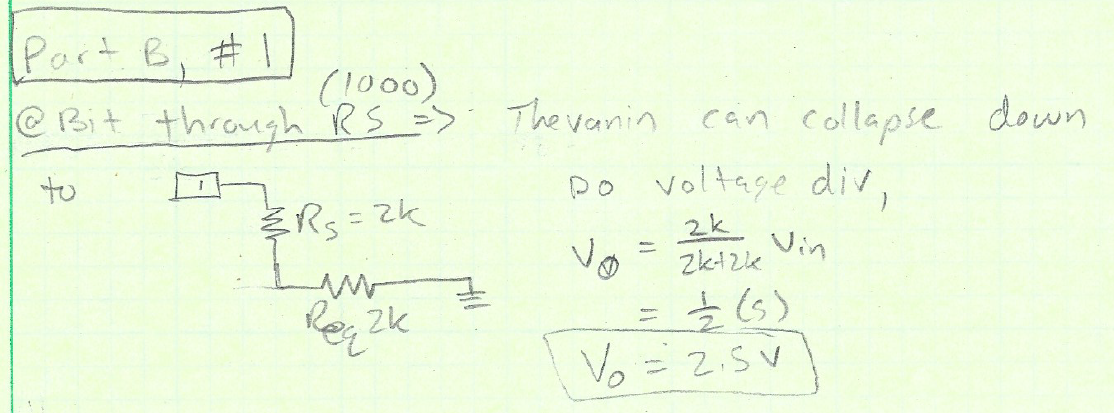 Part B, #1
(1000)
@ Bit through RS => Thevanin can collapse down
to
1
Rs = 2k
Req 2k
Do voltage div,
Vo = 2k/2k+2k Vin
= 1/2 (5)
Vo = 2.5V